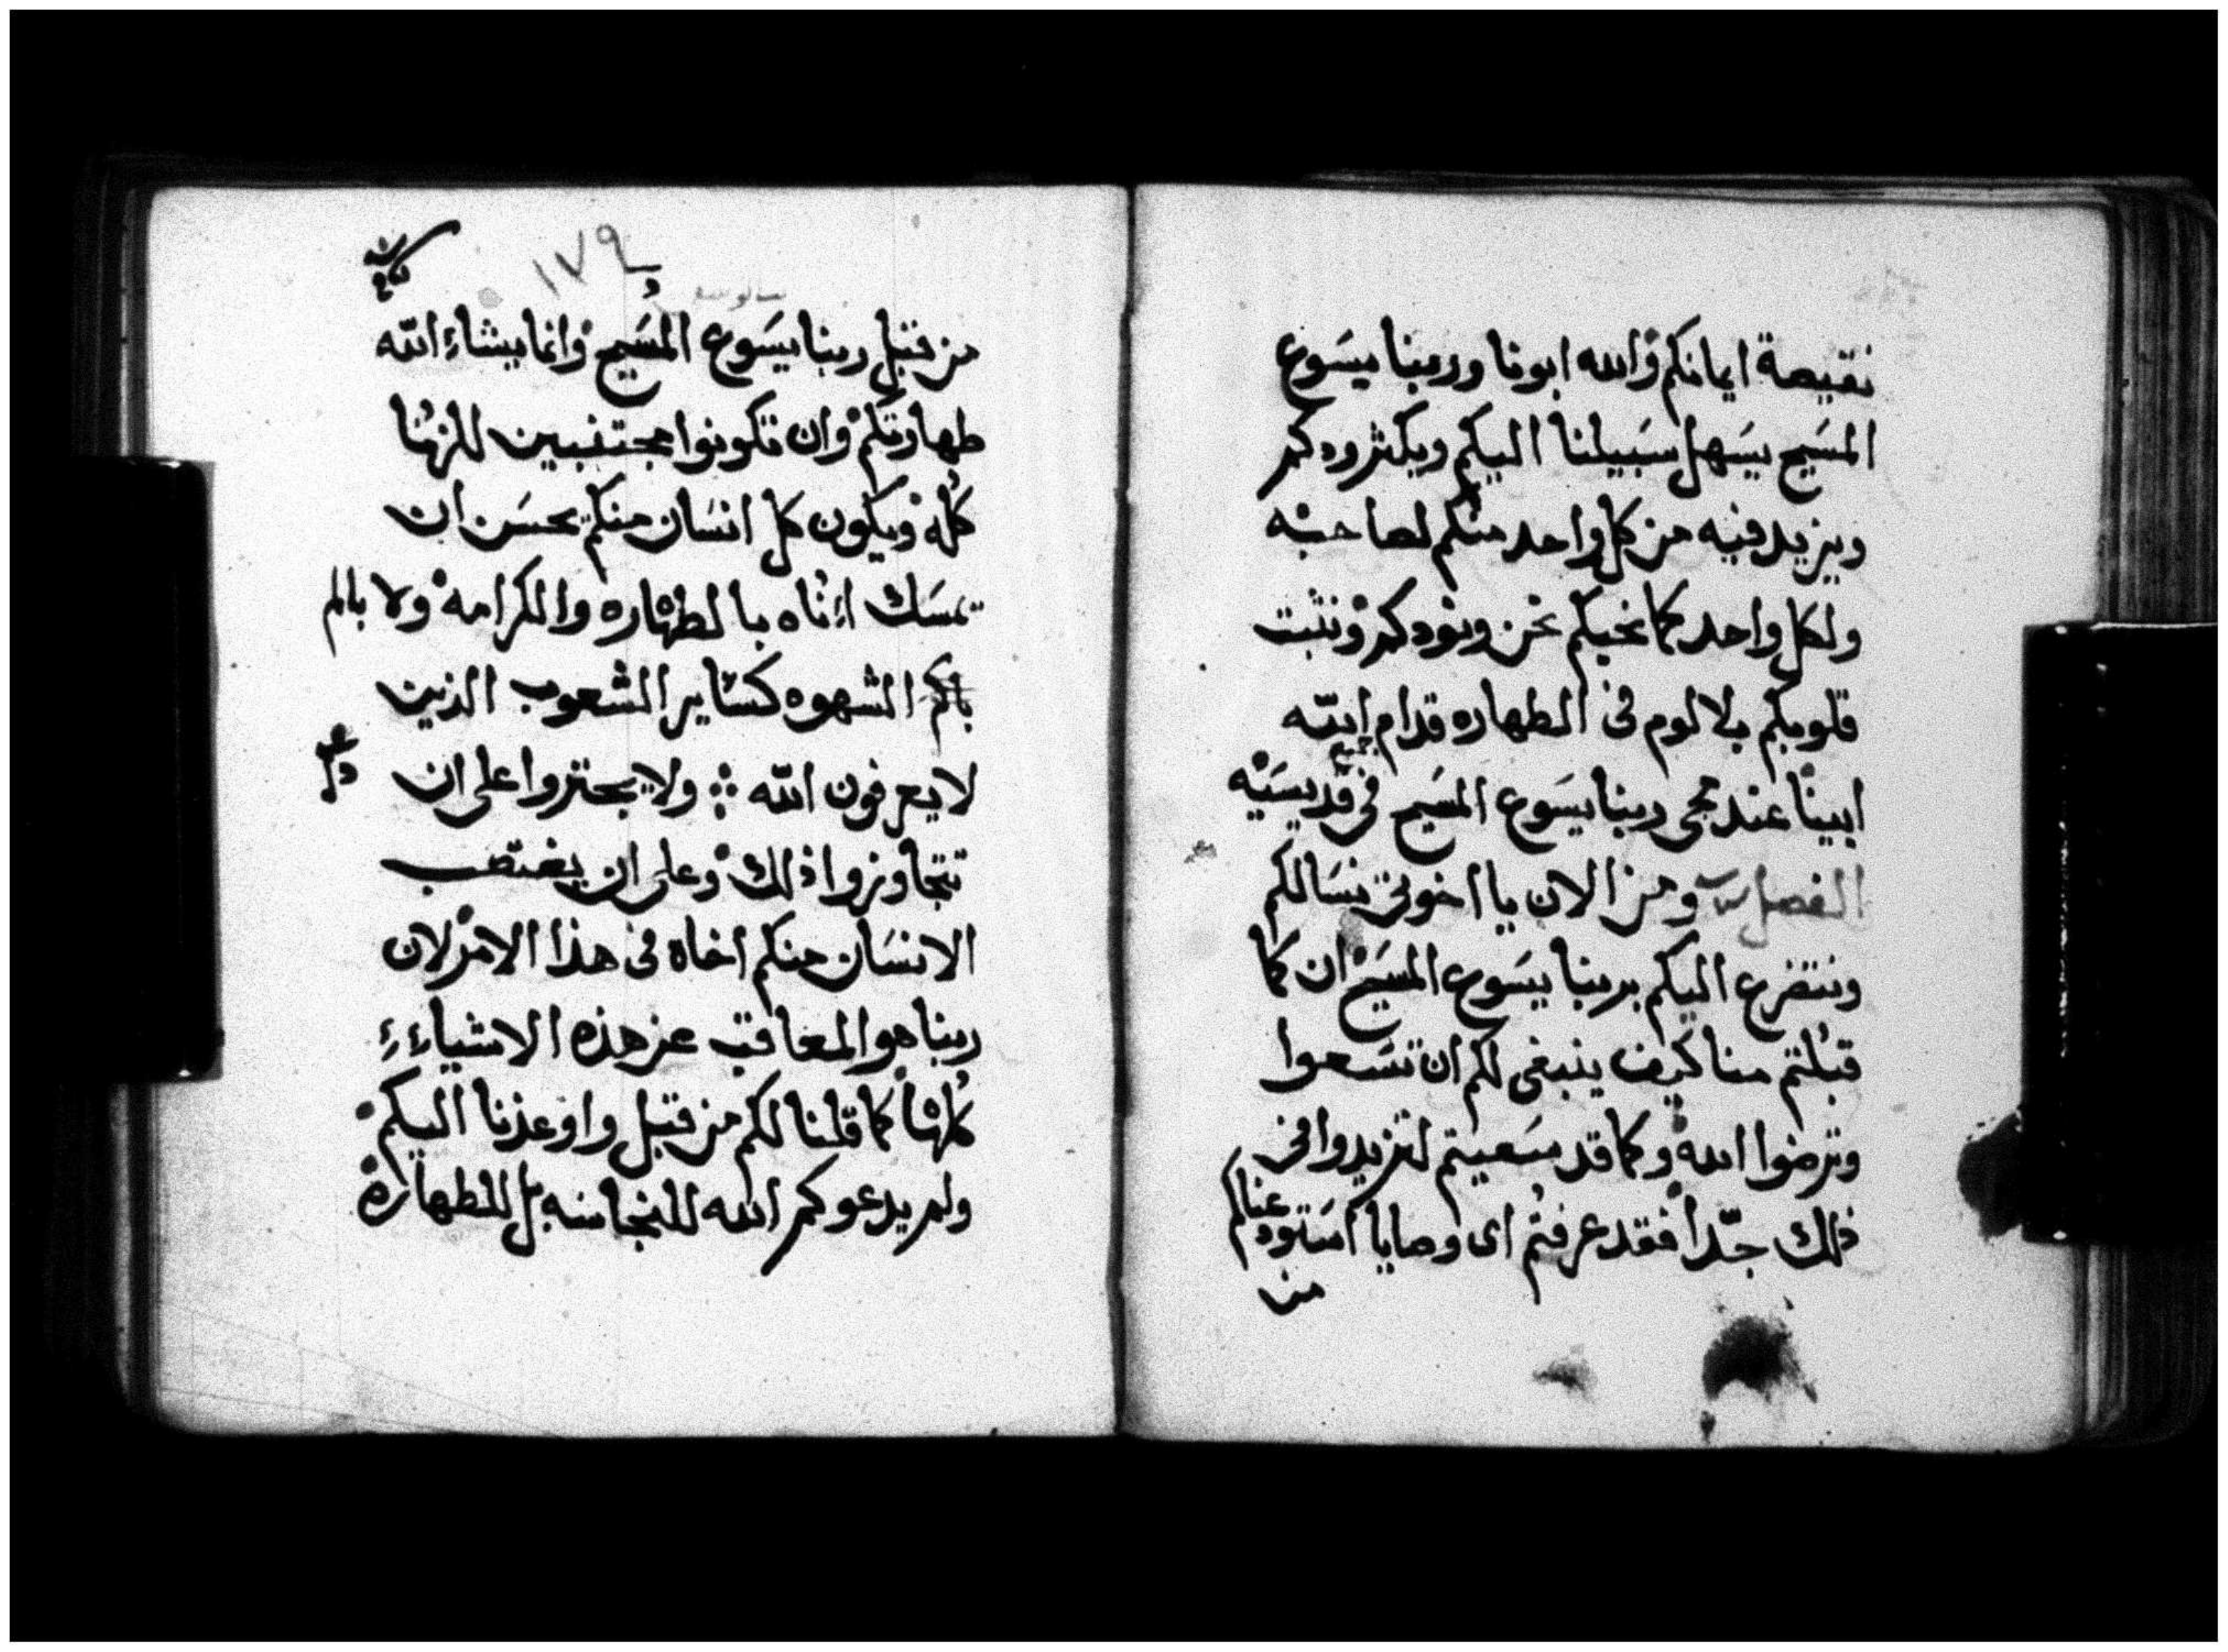 نقيصة ايمانكم والله ابونا وربنا يسوع
المسيح يسهل سبيلنا اليكم ويكثر ودكم
ويزيد فيه من كل واحد منكم لصاحبه
ولكل واحد كما نحبكم نحن ونودكم ونثبت
قلوبكم بلا لوم فى الطهاره قدام الله
ابينا عند مجى ربنا يسوع المسيح فى جميع قديسيه
الفصل ومن الان يا اخوتى نسالكم
ونتضرع اليكم بربنا يسوع المسيح ان كما
قبلتم منا كيف ينبغى لكم ان تسعوا
وترضوا الله وكما قد سعيتم لتزيدوا فى
ذلك جدا فقد عرفتم اى وصايا استودعناكم
من
١٧٩
من قبل ربنا يسوع المسيح وانما يشاء الله
طهارتكم وان تكونوا مجتنبين للزنا
كله ويكون كل انسان منكم يحسن ان
يمسك اناه بالطهاره والكرامه ولا بالم
الشهوه كساير الشعوب الذين
لا يعرفون الله ولا يجتروا على ان
تتجاوزوا ذلك وعلى ان يغتصب
الانسان منكم اخاه فى هذا الامر لان
ربنا هو المعاقب عن هذه الاشياء
كلها كما قلنا لكم من قبل واوعذنا اليكم
ولم يدعوكم الله للنجاسه بل للطهارة